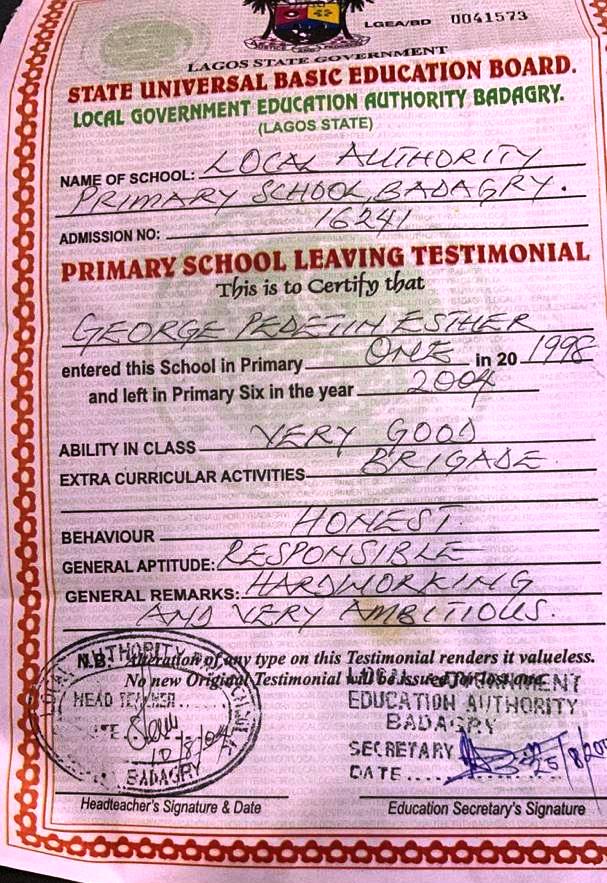 LGEA/BD 0041573
LAGOS STATE GOVERNMENT
STATE UNIVERSAL BASIC EDUCATION BOARD.
LOCAL GOVERNMENT EDUCATION AUTHORITY BADAGRY.
(LAGOS STATE)
NAME OF SCHOOL: LOCAL AUTHORITY
PRIMARY SCHOOL, BADAGRY.
ADMISSION NO: 16241
PRIMARY SCHOOL LEAVING TESTIMONIAL
This is to Certify that
GEORGE PEDETIN ESTHER
entered this School in Primary ONE in 20 1998
and left in Primary Six in the year 2004
ABILITY IN CLASS VERY GOOD
EXTRA CURRICULAR ACTIVITIES BRIGADE
BEHAVIOUR HONEST.
GENERAL APTITUDE: RESPONSIBLE
GENERAL REMARKS: HARDWORKING
AND VERY AMBITIOUS.
N.B: Alteration of any type on this Testimonial renders it valueless.
No new Original Testimonial will be issued for lost one.
LOCAL AUTHORITY
HEAD TEACHER
10/8/04
BADAGRY
LOCAL GOVERNMENT
EDUCATION AUTHORITY
BADAGRY
SECRETARY
DATE.... 25/8/
Headteacher's Signature & Date
Education Secretary's Signature